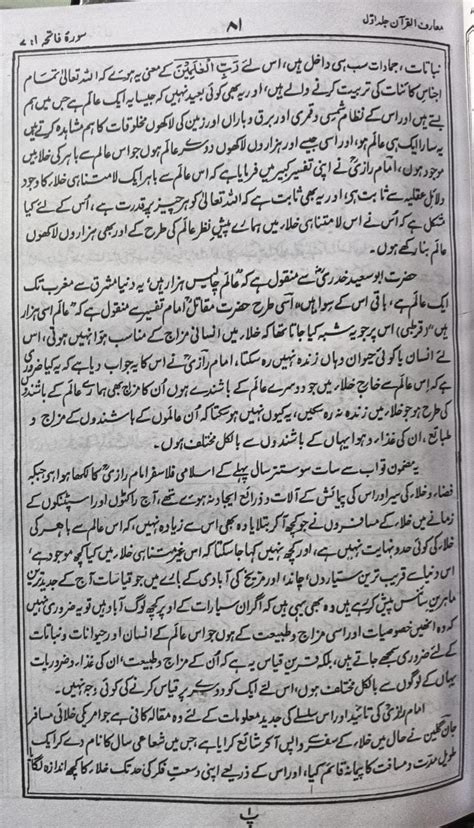 معارف القرآن جلد اوّل
۸۱
سورۂ فاتحہ ۱: ۷
نباتات، جمادات سب ہی داخل ہیں، اس لئے رَبِّ الْعٰلَمِیْنَ کے معنی یہ ہوئے کہ اللہ تعالیٰ تمام
اجناسِ کائنات کی تربیت کرنے والے ہیں، اور یہ بھی کوئی بعید نہیں کہ جیسا یہ ایک عالَم ہے جس میں ہم
بستے ہیں اور اس کے نظامِ شمسی و قمری اور برق و باراں اور زمین کی لاکھوں مخلوقات کا ہم مشاہدہ کرتے ہیں
یہ سارا ایک ہی عالَم ہو، اور اسی جیسے اور ہزاروں لاکھوں دوسرے عالَم ہوں جو اس عالم سے باہر کی خلا میں
موجود ہوں، امام رازیؒ نے اپنی تفسیر کبیر میں فرمایا ہے کہ اس عالم سے باہر ایک لامتناہی خلاء کا وجود
دلائلِ عقلیہ سے ثابت ہے، اور یہ بھی ثابت ہے کہ اللہ تعالیٰ کو ہر چیز پر قدرت ہے، اُس کے لئے کیا
مشکل ہے کہ اُس نے اس لامتناہی خلاء میں ہمارے پیشِ نظر عالَم کی طرح کے اور بھی ہزاروں لاکھوں
عالَم بنا رکھے ہوں۔
حضرت ابو سعید خدریؓ سے منقول ہے کہ "عالَم چالیس ہزار ہیں، یہ دنیا مشرق سے مغرب تک
ایک عالَم ہے، باقی اس کے سوا ہیں" اسی طرح حضرت مقاتلؒ امام تفسیر سے منقول ہے کہ "عالَم اسّی ہزار
ہیں" (قرطبی) اس پر جو یہ شبہ کیا جاتا تھا کہ خلاء میں انسانی مزاج کے مناسب ہوا نہیں ہوتی، اس
لئے انسان یا کوئی حیوان وہاں زندہ نہیں رہ سکتا، امام رازیؒ نے اس کا یہ جواب دیا ہے کہ یہ کیا ضروری
ہے کہ اس عالم سے خارج خلاء میں جو دوسرے عالَم کے باشندے ہوں اُن کا مزاج بھی ہمارے عالَم کے باشندوں
کی طرح ہو جو خلاء میں زندہ نہ رہ سکیں، یہ کیوں نہیں ہو سکتا کہ اُن عالموں کے باشندوں کے مزاج و
طبائع، اُن کی غذاء و ہوا یہاں کے باشندوں سے بالکل مختلف ہوں۔
یہ مضمون تو اب سے سات سو ستر سال پہلے کے اسلامی فلاسفر امام رازیؒ کا لکھا ہوا ہی جبکہ
فضاء و خلاء کی سیر اور اس کی پیمائش کے آلات و ذرائع ایجاد نہ ہوئے تھے، آج راکٹوں اور اسپٹنکوں کے
زمانے میں خلاء کے مسافروں نے جو کچھ آکر بتلایا وہ بھی اس سے زیادہ نہیں، کہ اس عالم سے باہر کی
خلاء کی کوئی حد و نہایت نہیں ہے، اور کچھ نہیں کہا جا سکتا کہ اس غیر متناہی خلاء میں کیا کچھ موجود ہے،
اس دنیا سے قریب ترین ستیاروں، چاند اور مریخ کی آبادی کے بارے میں جو قیاسات آج کے جدید ترین
ماہرینِ سائنس پیش کر رہے ہیں وہ بھی یہی ہیں کہ اگر ان سیارات کے اوپر کچھ لوگ آباد ہوں تو یہ ضروری نہیں
کہ وہ انھیں خصوصیات اور اسی مزاج و طبیعت کے ہوں جو اس عالم کے انسان اور حیوانات و نباتات
کے لئے ضروری سمجھے جاتے ہیں، بلکہ قرینِ قیاس یہ ہے کہ اُن کے مزاج و طبیعت، اُن کی غذاء و ضروریات
یہاں کے لوگوں سے بالکل مختلف ہوں، اس لئے ایک کو دوسرے پر قیاس کرنے کی کوئی وجہ نہیں۔
امام رازیؒ کی تائید اور اس سلسلے کی جدید معلومات کے لئے وہ مقالہ کافی ہے جو امریکی خلائی مسافر
جان گلین نے حال میں خلاء کے سفر سے واپس آکر شائع کرایا ہے، جس میں شعاعی سال کا نام دے کر ایک
طویل مدّت و مسافت کا پیمانہ قائم کیا، اور اس کے ذریعے اپنی وسعتِ فکر کی حد تک خلاء کا کچھ اندازہ لگایا